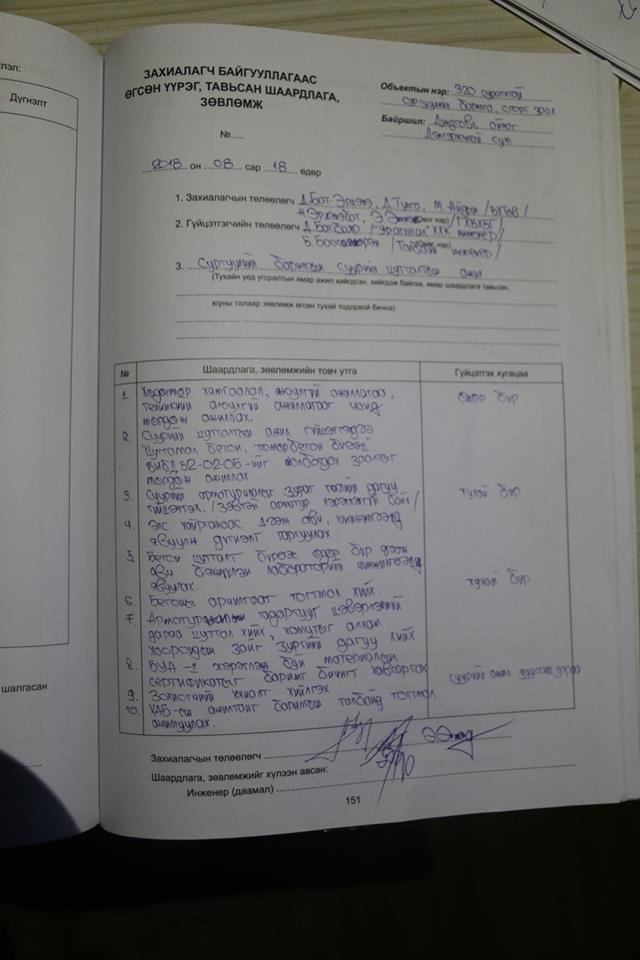 Дүгнэлт
шалгасан
ЗАХИАЛАГЧ БАЙГУУЛЛАГААС
ӨГСӨН ҮҮРЭГ, ТАВЬСАН ШААРДЛАГА,
ЗӨВЛӨМЖ
№.....
Объектын нэр: 320 суудалтай
сургуулийн барилга, спорт заал
Байршил:
сум
2018 он 08 сар 18 өдөр
1. Захиалагчын төлөөлөгч Д.Бат-Эрдэнэ, Д.Түмэн, М.
2. Гүйцэтгэгчийн төлөөлөгч Д. ХХК инженер/
Б. инженер/
3. Сургуулийн барилгын суурийн цутгалтын ажил
(Тухайн үед угсралтын ямар ажил хийгдсэн, хийгдэж байгаа, ямар шаардлага тавьсан,
юуны талаар зөвлөмж өгсөн тухай тодорхой бичнэ)
№ Шаардлага, зөвлөмжийн товч утга Гүйцэтгэх хугацаа
1. Хөдөлмөр хамгаалал, аюулгүй ажиллагаа, өдөр бүр
техникийн аюулгүй ажиллагааг чанд
мөрдөж ажиллах.
2. Суурийн цутгалтын ажил гүйцэтгэхдээ
"Цутгамал бетон, төмөрбетон бүтээц"
БНбД 52-02-05-ийг холбогдох заалтыг
мөрдөж ажиллах
3. Суурийн арматурчлалыг зураг төслийн дагуу тухай бүр
гүйцэтгэх. /Зэвтэй арматур хэрэглэхгүй байх/
4. Элс хайрганаас дээж авч, шинжилгээнд
явуулж дүгнэлт гаргуулах.
5. Бетон цутгалт бүрээс өдөр бүр дээж
авч бэхжилтийн лабораторийн шинжилгээнд
явуулах.
6. Бетоны арчилгааг тогтмол хийх. тухай бүр
7. Арматурчлалын гадаргууг цэвэрлэсний
дараа цутгалт хийх, хомутыг алхам
хоорондын зайг зургийн дагуу хийх
8. БУД-д хэрэглэж буй материалын
сертификатыг баримт бичигт хавсаргах суурийн ажил дууссаны дараа
9. Зохиогчийн хяналт хийлгэх
10. ХАБ-ын ажилтанг барилгын талбайд тогтмол
ажиллуулах.
Захиалагчын төлөөлөгч
Шаардлага, зөвлөмжийг хүлээн авсан:
Инженер (даамал)
151